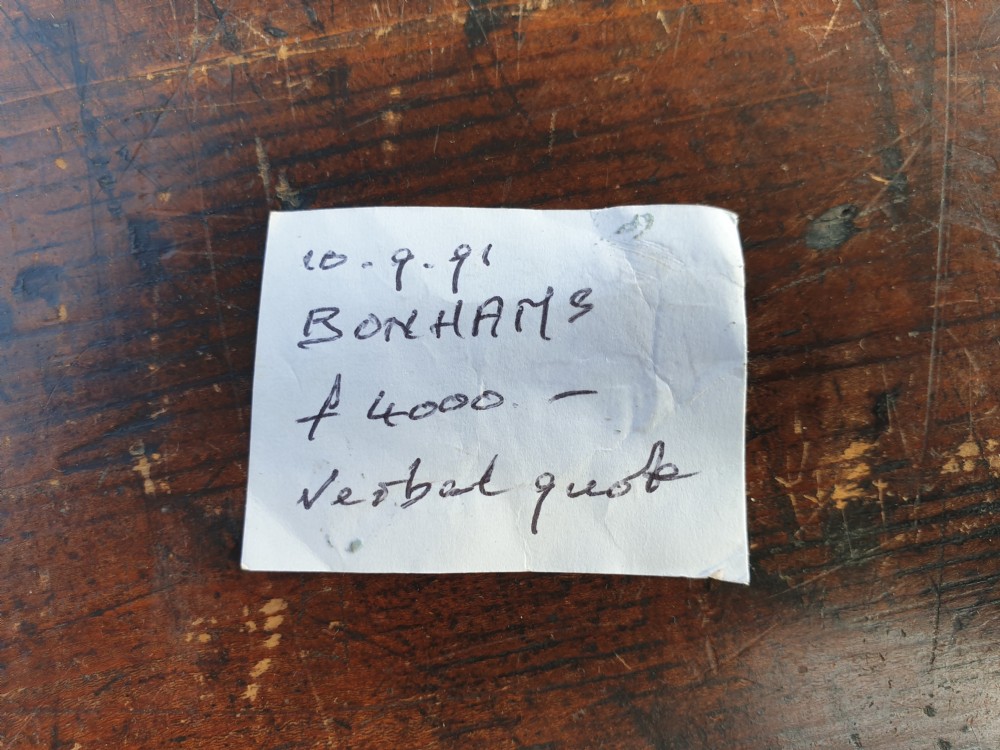 10.9.91
BONHAMS
£4000.—
Verbal quote